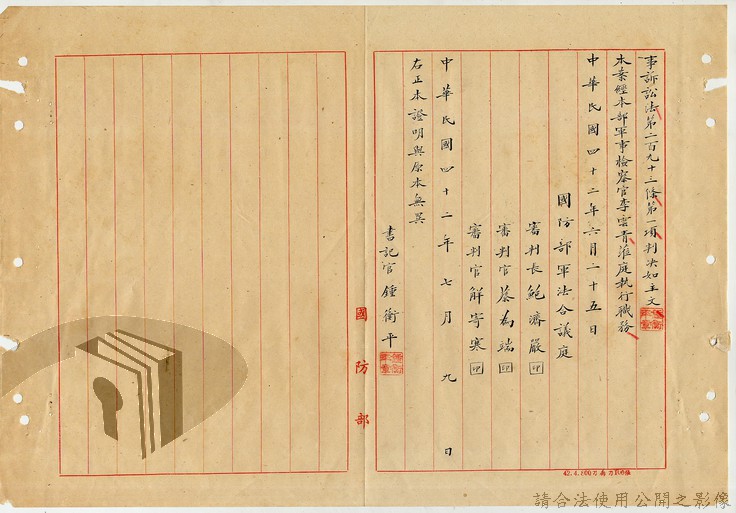 事訴訟法第二百九十三條第一項判決如主文
本案經本部軍事檢察官李雲青蒞庭執行職務
中華民國四十二年六月二十五日
國防部軍法合議庭
審判長鮑濟嚴印
審判官蔡為端印
審判官解寄寒印
中華民國四十二年七月九日
右正本證明與原本無異
書記官鍾衡平
國防部
請合法使用公開之影像